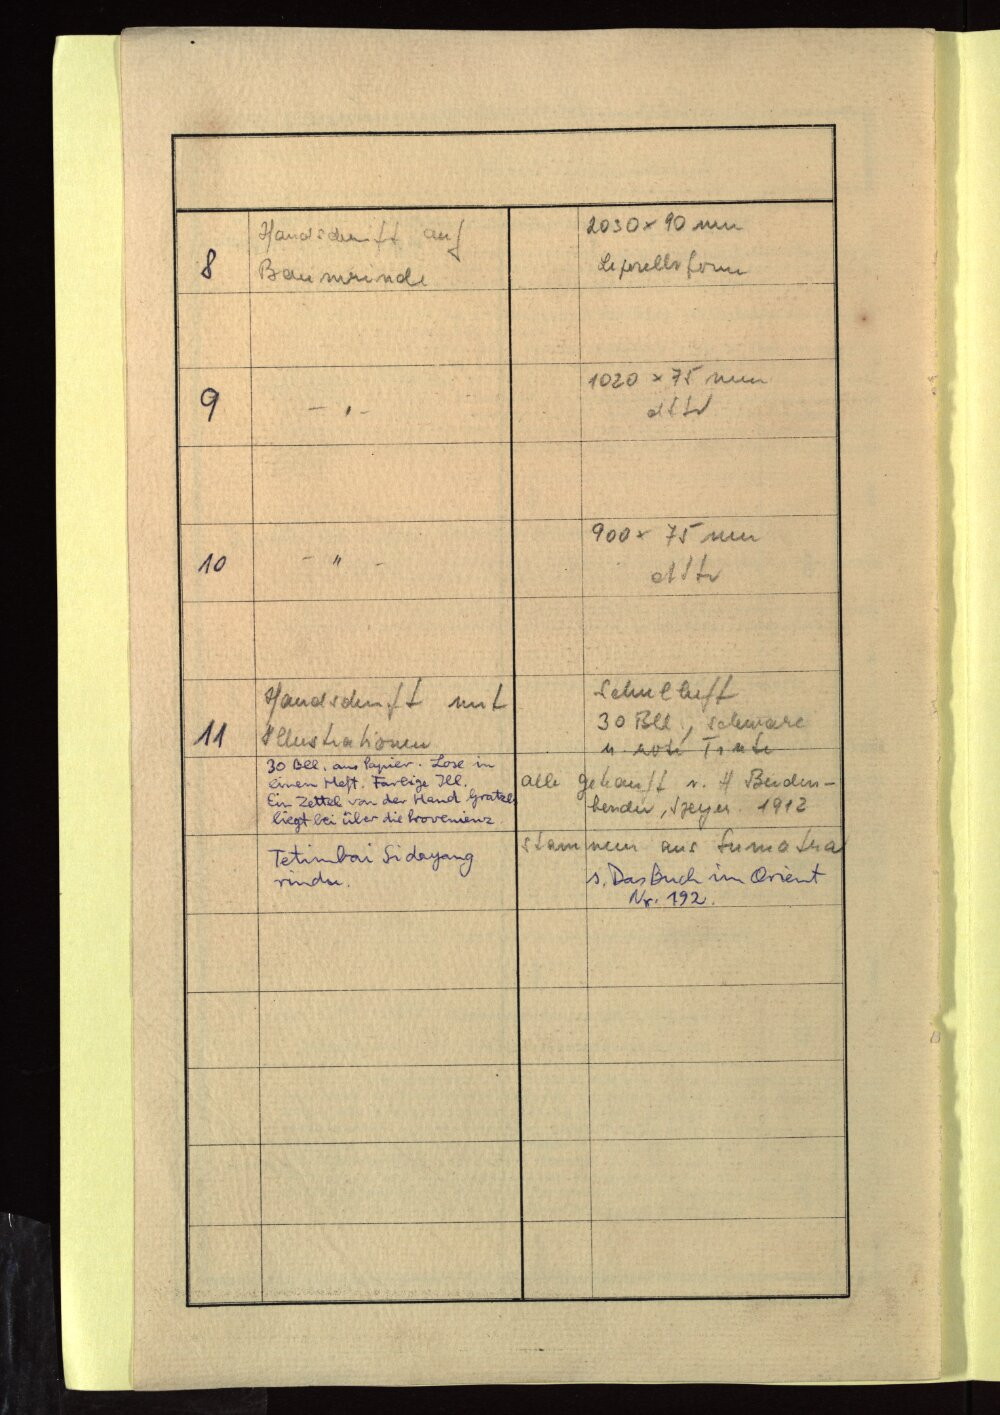 8
Handschrift auf
Baumrinde
2030 x 90 mm
Leporelloform
9
- " -
1020 x 75 mm
dtto
10
- " -
900 x 75 mm
dtto
11
Handschrift mit
Illustrationen
Schulheft
30 Bll, schwarze
u. rote Tinte
30 Bll. aus Papier. Lose in
einem Heft. Farbige Ill.
Ein Zettel von der Hand Gratzls
liegt bei über die Provenienz.
alle gekauft v. H
1912
Tetimbai Sidayang
rindu.
stammen aus Sumatra
s. Das Buch im Orient
Nr. 192.